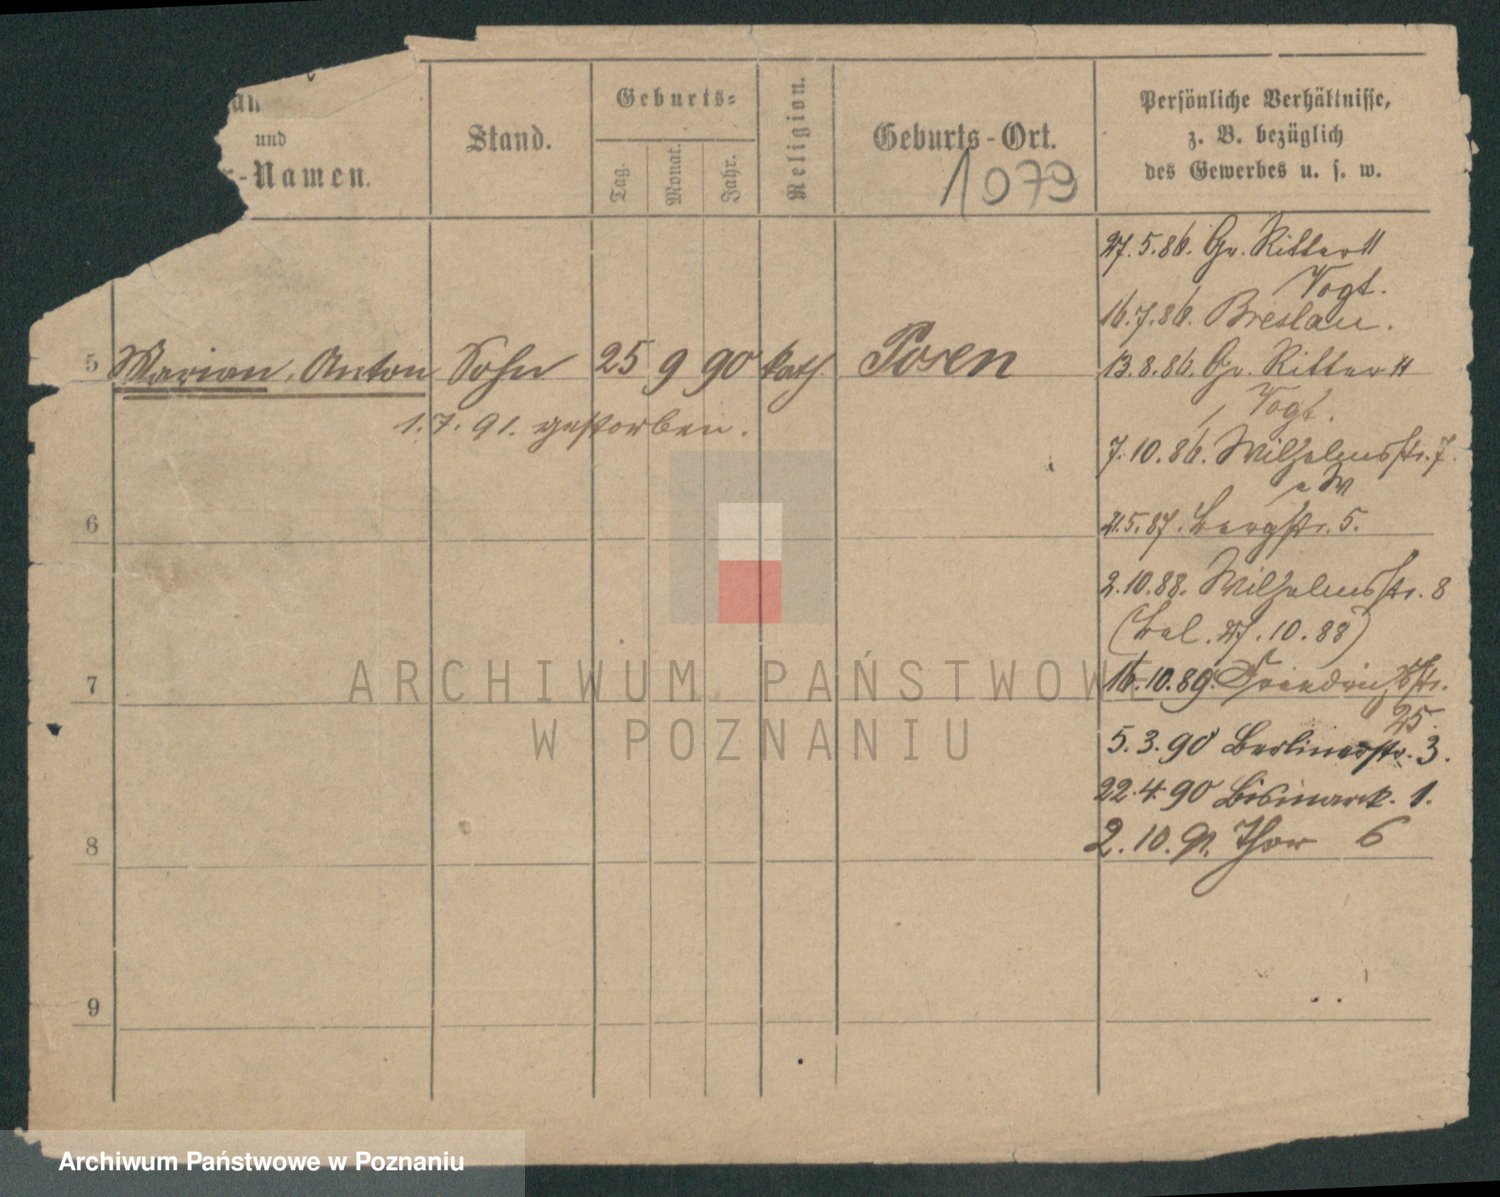 und
-Namen.
Stand.
Geburts-
Tag.
Monat.
Jahr.
Religion.
Geburts-Ort.
1079
Persönliche Verhältnisse,
z. B. bezüglich
des Gewerbes u. s. w.
27.5.86. Gr. Ritter 11
Vogt.
16.7.86. Breslau.
5 Marian, Anton Sohn 25 9 90 kath Posen
13.8.86. Gr. Ritter 11
Vogt.
1.7.91. gestorben.
7.10.86. Wilhelmsstr. 7.
6
21.5.87. Bergstr. 5.
2.10.88. Wilhelmsstr. 8
27.10.88)
7
16.10.89. Friedrichstr.
25.
5.3.90 Berlinerstr. 3.
22.4.90 Bismarck. 1.
2.10.91. Thor 6
8
9
ARCHIWUM PAŃSTWOWE
W POZNANIU
Archiwum Państwowe w Poznaniu